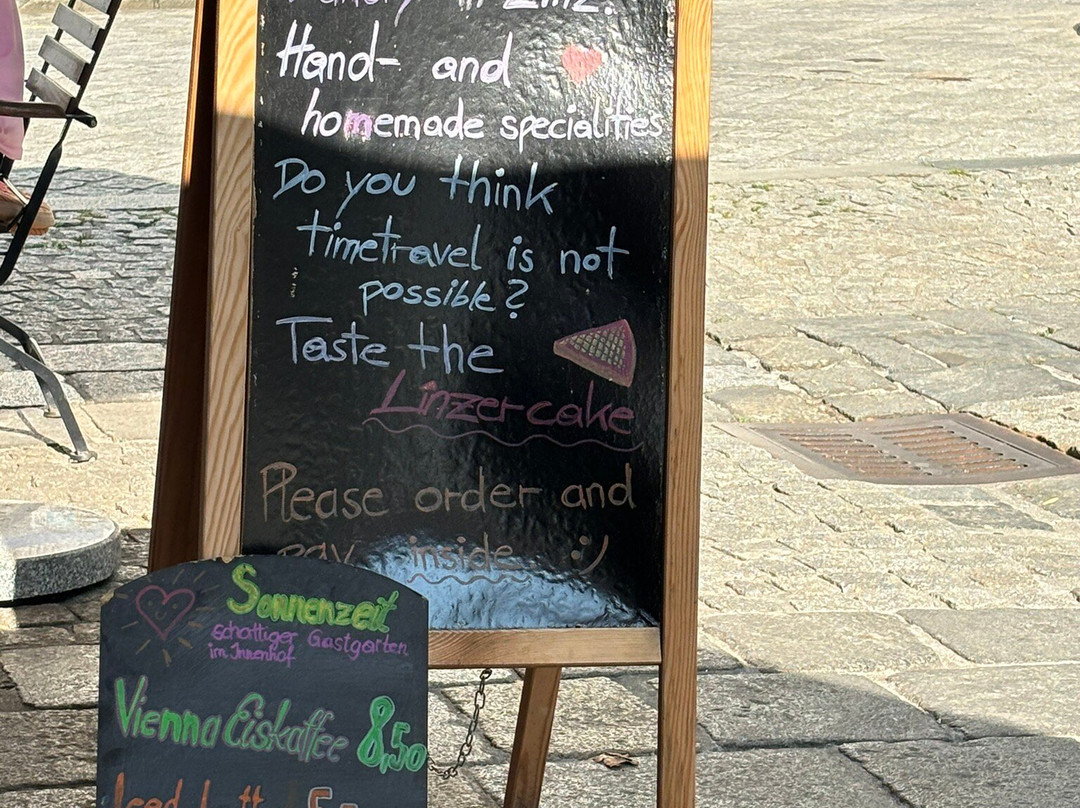 in Linz!
Hand- and
homemade specialities
Do you think
timetravel is not
possible?
Taste the
Linzercake
Please order and
pay inside :)
Sonnenzeit
schattiger Gastgarten
im Innenhof
Vienna Eiskaffee 8,50
Iced Latte